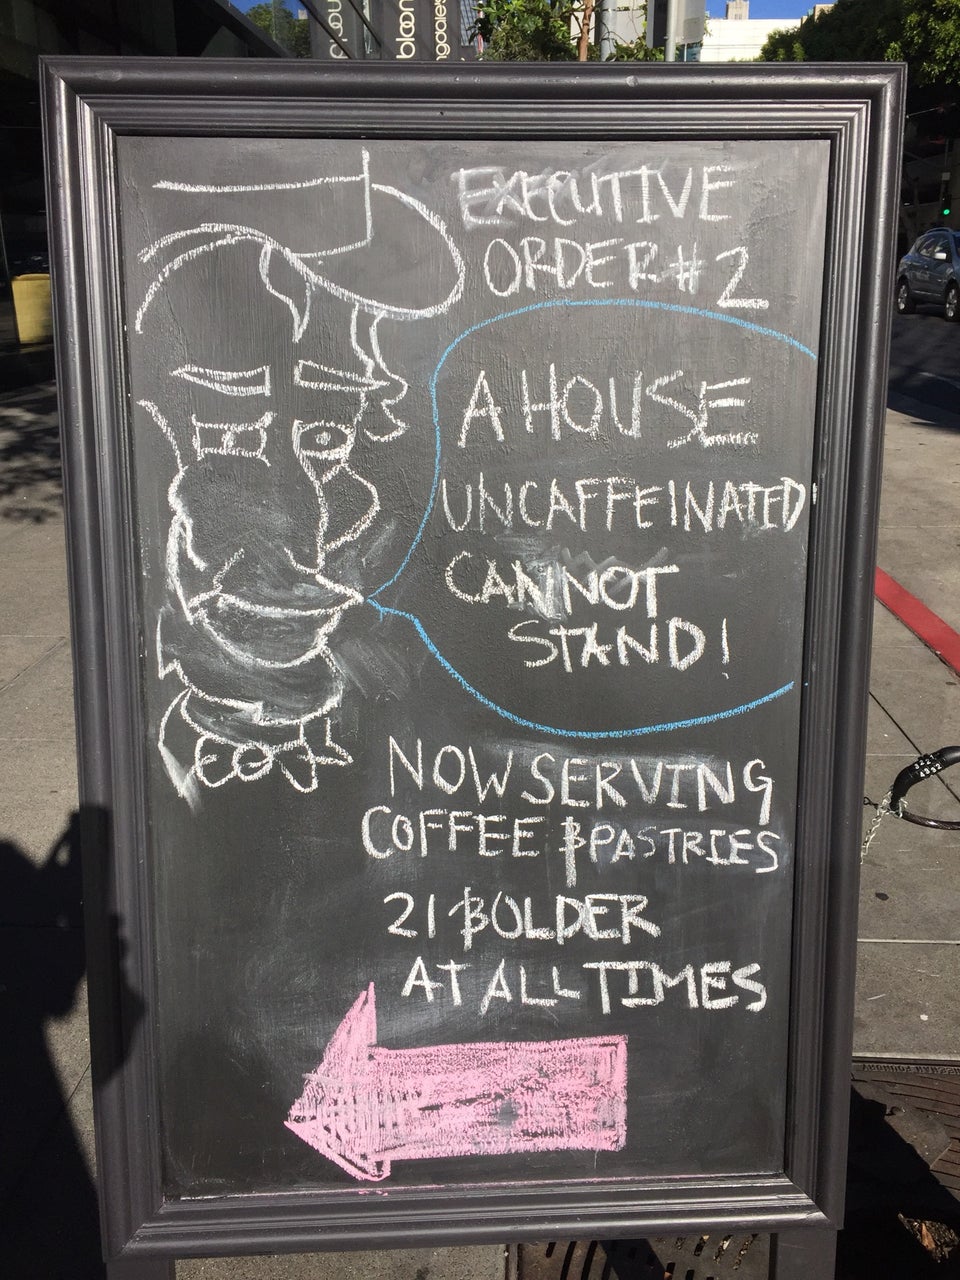 bloom
ingdales
EXECUTIVE
ORDER #2
A HOUSE
UNCAFFEINATED
CANNOT
STAND!
NOW SERVING
COFFEE & PASTRIES
21 & OLDER
AT ALL TIMES